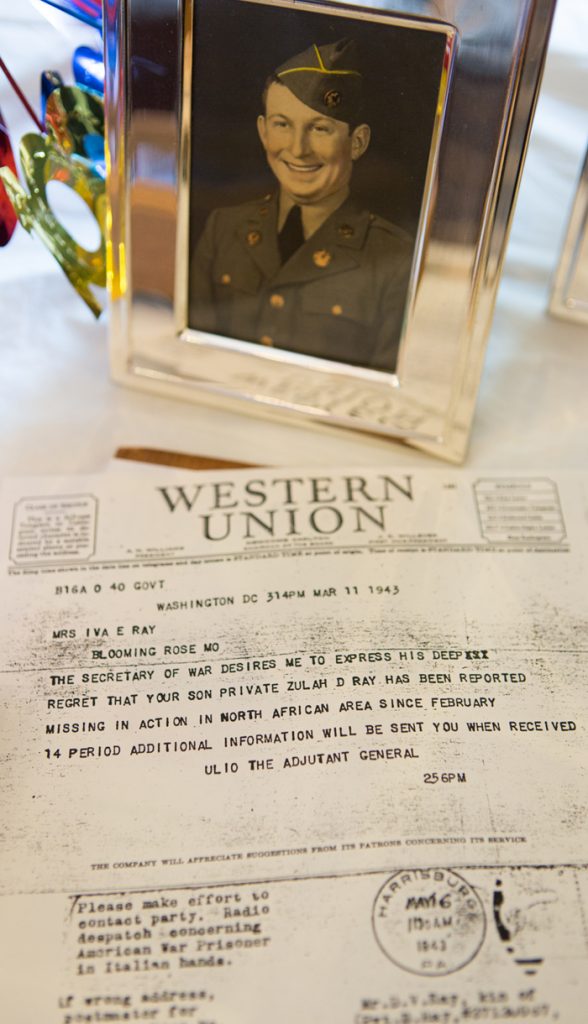 WESTERN
UNION
B16A O 40 GOVT
WASHINGTON DC 314PM MAR 11 1943
MRS IVA E RAY
BLOOMING ROSE MO
THE SECRETARY OF WAR DESIRES ME TO EXPRESS HIS DEEPXXX
REGRET THAT YOUR SON PRIVATE ZULAH D RAY HAS BEEN REPORTED
MISSING IN ACTION IN NORTH AFRICAN AREA SINCE FEBRUARY
14 PERIOD ADDITIONAL INFORMATION WILL BE SENT YOU WHEN RECEIVED
ULIO THE ADJUTANT GENERAL
256PM
THE COMPANY WILL APPRECIATE SUGGESTIONS FROM ITS PATRONS CONCERNING ITS SERVICE
Please make effort to
contact party. Radio
despatch concerning
American War Prisoner
in Italian hands.
HARRISBURG
MAY 6
10 AM
1943
PA
if wrong address,
postmaster for
Mr.D.V.Ray, kin of